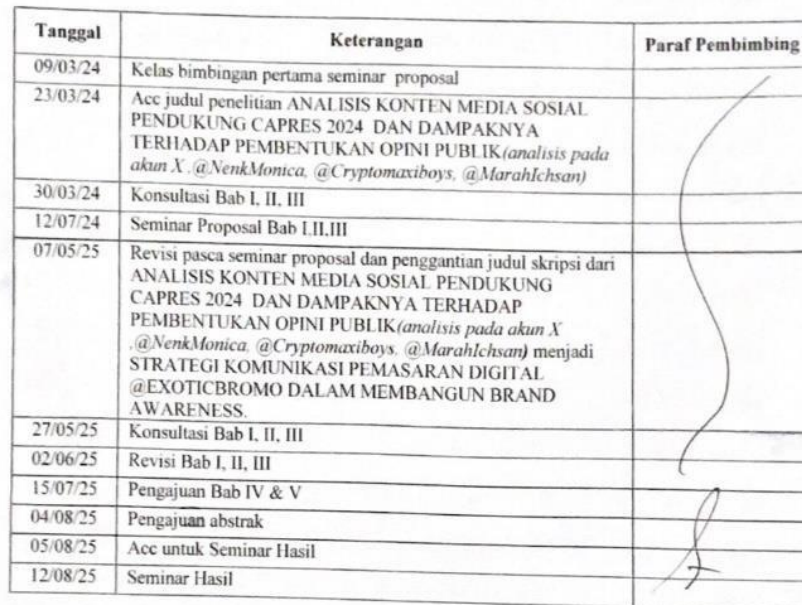 Tanggal Keterangan Paraf Pembimbing
09/03/24 Kelas bimbingan pertama seminar proposal
23/03/24 Acc judul penelitian ANALISIS KONTEN MEDIA SOSIAL
PENDUKUNG CAPRES 2024 DAN DAMPAKNYA
TERHADAP PEMBENTUKAN OPINI PUBLIK(analisis pada
akun X ,@NenkMonica, @Cryptomaxiboys, @MarahIchsan)
30/03/24 Konsultasi Bab I, II, III
12/07/24 Seminar Proposal Bab I.II.III
07/05/25 Revisi pasca seminar proposal dan penggantian judul skripsi dari
ANALISIS KONTEN MEDIA SOSIAL PENDUKUNG
CAPRES 2024 DAN DAMPAKNYA TERHADAP
PEMBENTUKAN OPINI PUBLIK(analisis pada akun X
,@NenkMonica, @Cryptomaxiboys, @MarahIchsan) menjadi
STRATEGI KOMUNIKASI PEMASARAN DIGITAL
@EXOTICBROMO DALAM MEMBANGUN BRAND
AWARENESS.
27/05/25 Konsultasi Bab I, II, III
02/06/25 Revisi Bab I, II, III
15/07/25 Pengajuan Bab IV & V
04/08/25 Pengajuan abstrak
05/08/25 Acc untuk Seminar Hasil
12/08/25 Seminar Hasil